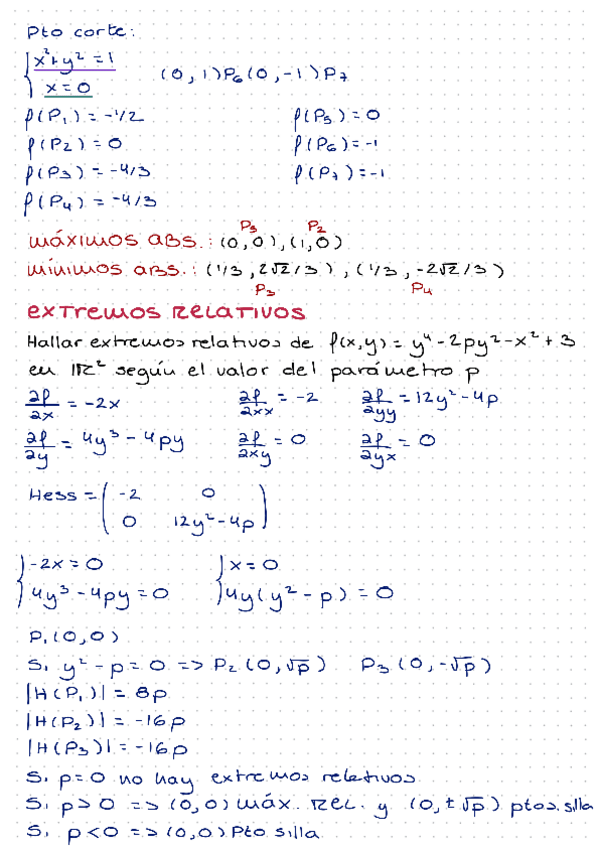 Pto corte:
{x²+y²=1
x=0 (0,1)P₆(0,-1)P₇
f(P₁)=-1/2 f(P₅)=0
f(P₂)=0 f(P₆)=-1
f(P₃)=-4/3 f(P₇)=-1
f(P₄)=-4/3
P₃ P₂
máximos ABS.: (0,0),(1,0)
mínimos ABS.: (1/3,2√2/3),(1/3,-2√2/3)
P₃ P₄
extremos RELATIVOS
Hallar extremos relativos de f(x,y)=y⁴-2py²-x²+3
en ℝ² según el valor del parámetro p
∂f/∂x = -2x ∂f/∂xx = -2 ∂f/∂yy = 12y²-4p
∂f/∂y = 4y³-4py ∂f/∂xy = 0 ∂f/∂yx = 0
Hess = ( -2 0
0 12y²-4p )
{-2x=0 {x=0
4y³-4py=0 4y(y²-p)=0
P₁(0,0)
Si y²-p=0 => P₂(0,√p) P₃(0,-√p)
|H(P₁)|=8p
|H(P₂)|=-16p
|H(P₃)|=-16p
Si p=0 no hay extremos relativos
Si p>0 => (0,0) máx. rel. y (0,±√p) ptos. silla
Si p<0 => (0,0) Pto silla